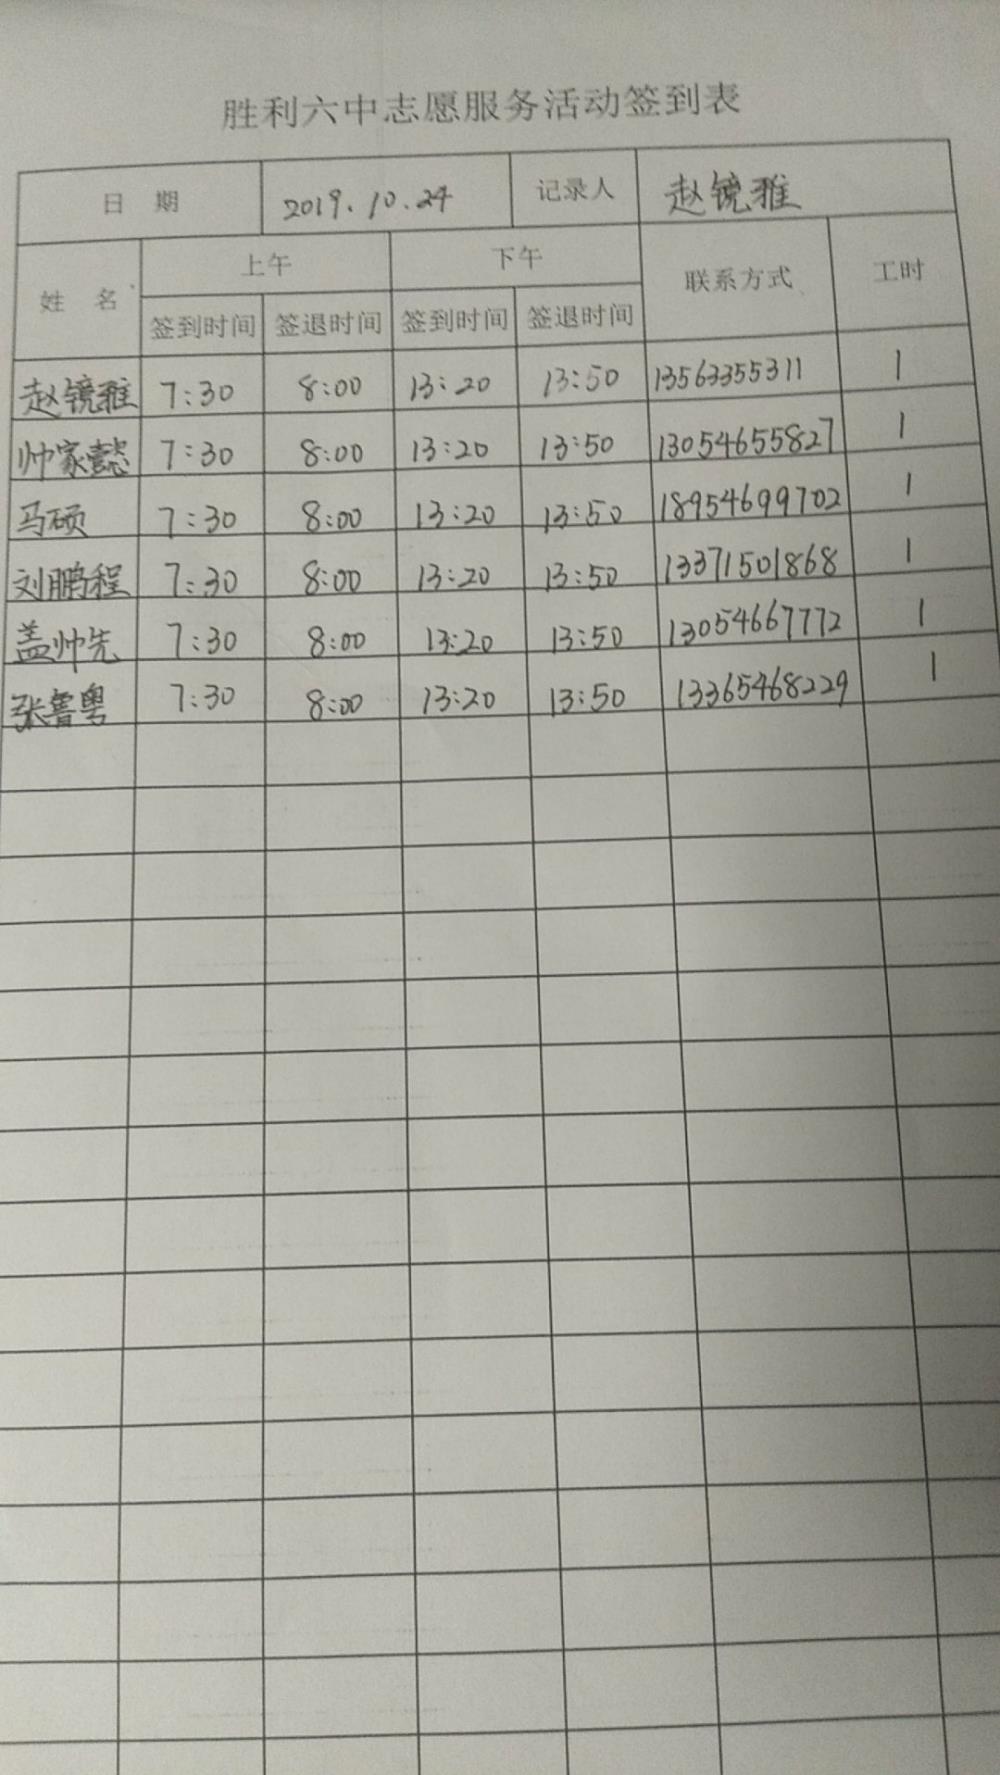 胜利六中志愿服务活动签到表
日 期 2019.10.24 记录人 赵镜雅
姓 名 上午 下午 联系方式 工时
签到时间 签退时间 签到时间 签退时间
赵镜雅 7:30 8:00 13:20 13:50 13563355311 1
帅家懿 7:30 8:00 13:20 13:50 13054655827 1
马硕 7:30 8:00 13:20 13:50 18954699702 1
刘鹏程 7:30 8:00 13:20 13:50 13371501868 1
盖帅先 7:30 8:00 13:20 13:50 13054667772 1
张鲁粤 7:30 8:00 13:20 13:50 13365468229 1